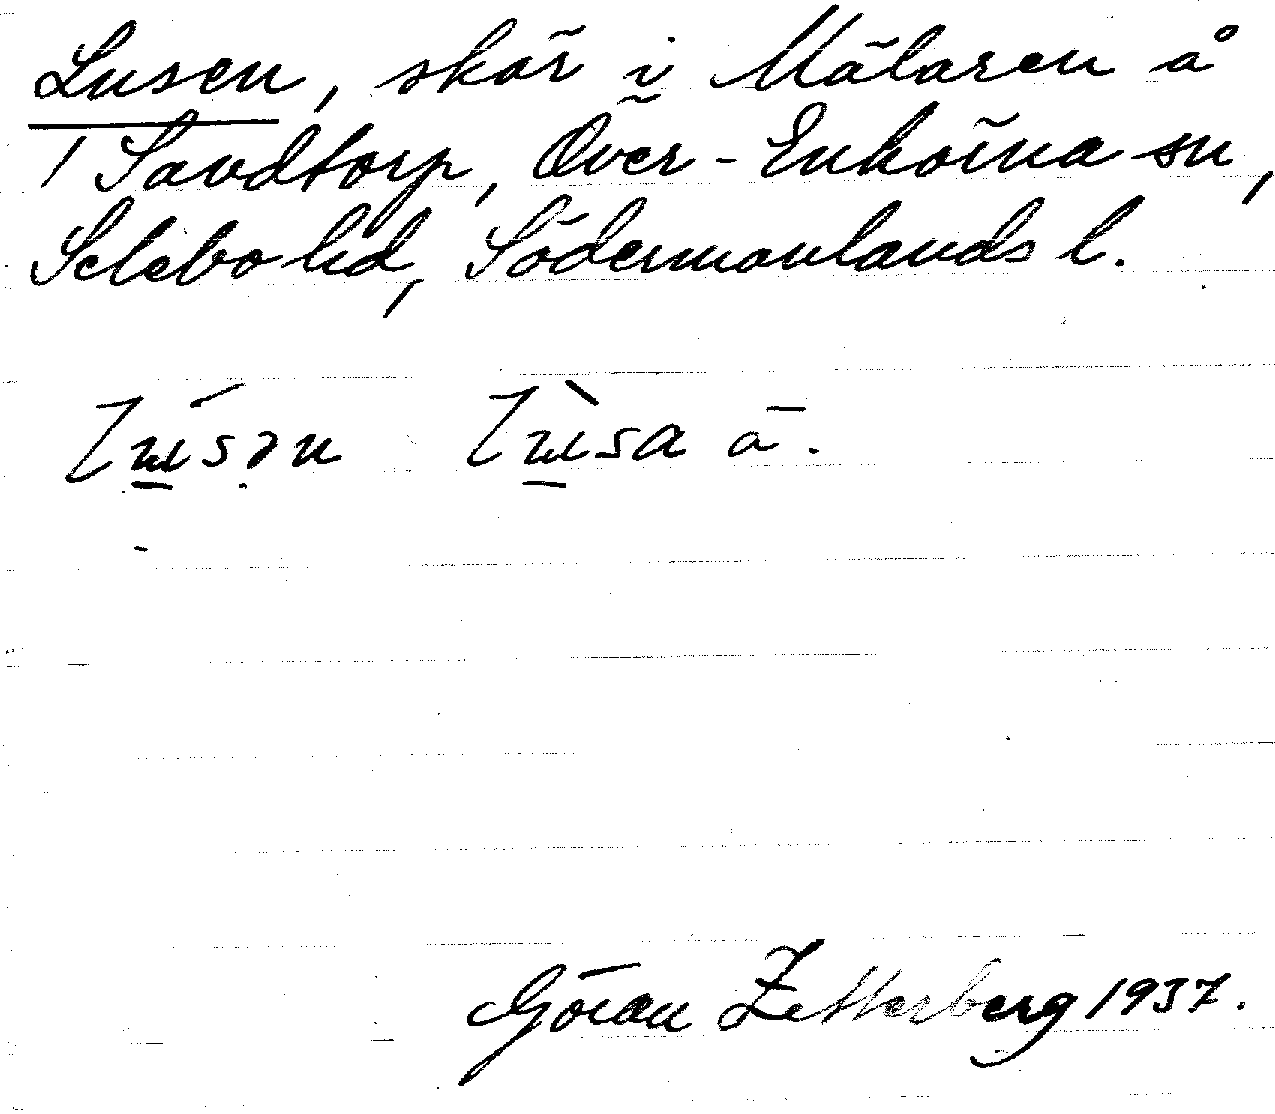 Lusen, skär i Mälaren å
/ Sandtorp, Över-Enhörna sn,
Selebo hd, Södermanlands l.
Göran Zetterberg 1937.